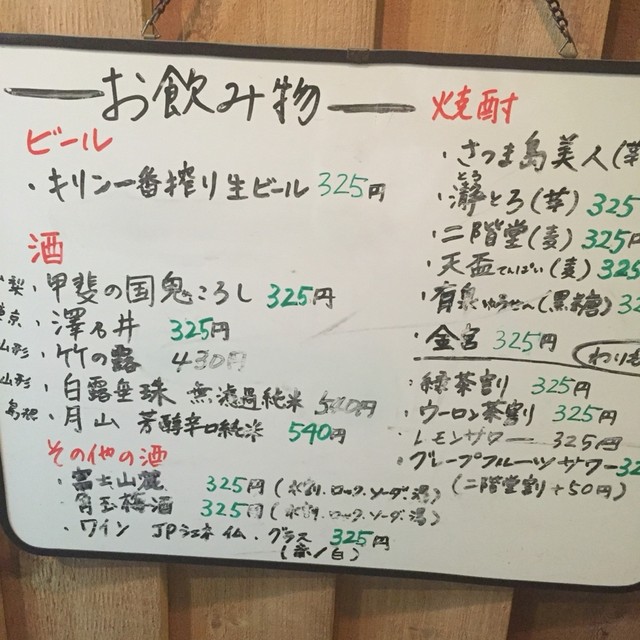 お飲み物
ビール
・キリン一番搾り生ビール 325円
酒
梨・甲斐の国鬼ころし 325円
京・澤乃井 325円
山形・竹の露 430円
山形・白露垂珠 無濾過純米 540円
島根・月山 芳醇辛口純米 540円
その他の酒
・富士山麓 325円(水割・ロック・ソーダ・湯)
・角玉梅酒 325円(水割・ロック・ソーダ・湯)
・ワイン JPシェネ 仏・グラス 325円
(赤/白)
焼酎
・さつま島美人(芋
・瀞とろ(芋) 325
・二階堂(麦) 325円
・天盃てんぱい(麦) 325
・有泉ゆうせん(黒糖) 32
・金宮 325円 わりも
・緑茶割り 325円
・ウーロン茶割り 325円
・レモンサワー 325円
・グレープフルーツサワー 32
(二階堂割+50円)